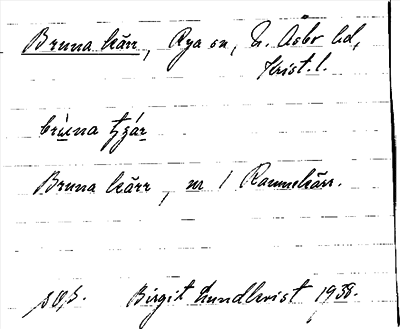 Bruna kärr, Rya sn, N. Åsbo hd,
Krist. l.
brùna tjär
Bruna kärr, nr 1 Rammekärr.
sÿs. Birgit Lundkvist 1938.